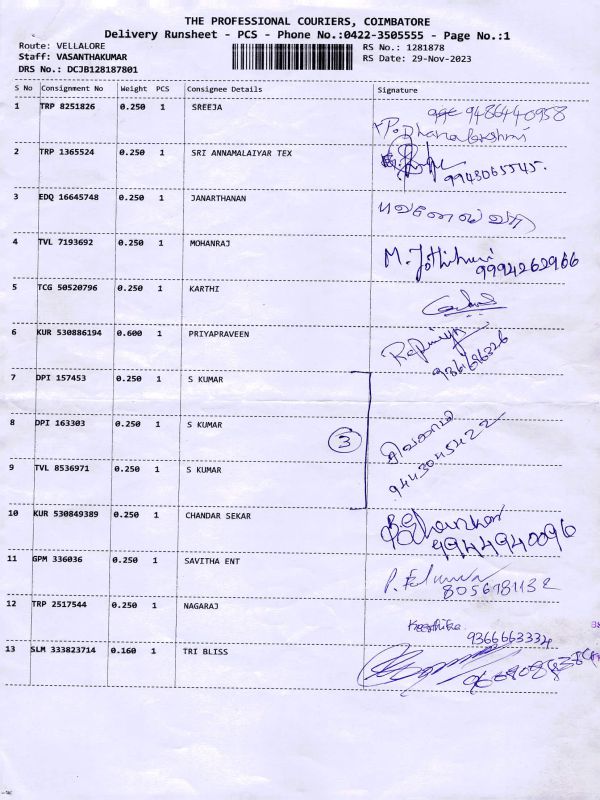 THE PROFESSIONAL COURIERS, COIMBATORE
Delivery Runsheet - PCS - Phone No.:0422-3505555 - Page No.:1
Route: VELLALORE
RS No.: 1281878
Staff: VASANTHAKUMAR
RS Date: 29-Nov-2023
DRS No.: DCJB128187801
S No Consignment No Weight PCS Consignee Details Signature
1 TRP 8251826 0.250 1 SREEJA 9486440958
P. Dhanalakshmi
2 TRP 1365524 0.250 1 SRI ANNAMALAIYAR TEX
9943065545.
3 EDQ 16645748 0.250 1 JANARTHANAN
4 TVL 7193692 0.250 1 MOHANRAJ M. Jothimani
9994262966
5 TCG 50520796 0.250 1 KARTHI
6 KUR 530886194 0.600 1 PRIYAPRAVEEN
7 DPI 157453 0.250 1 S KUMAR
8 DPI 163303 0.250 1 S KUMAR
3
9443045422
9 TVL 8536971 0.250 1 S KUMAR
10 KUR 530849389 0.250 1 CHANDAR SEKAR
9944940096
11 GPM 336036 0.250 1 SAVITHA ENT
8056781132
12 TRP 2517544 0.250 1 NAGARAJ Keerthika
9366663334
13 SLM 333823714 0.160 1 TRI BLISS